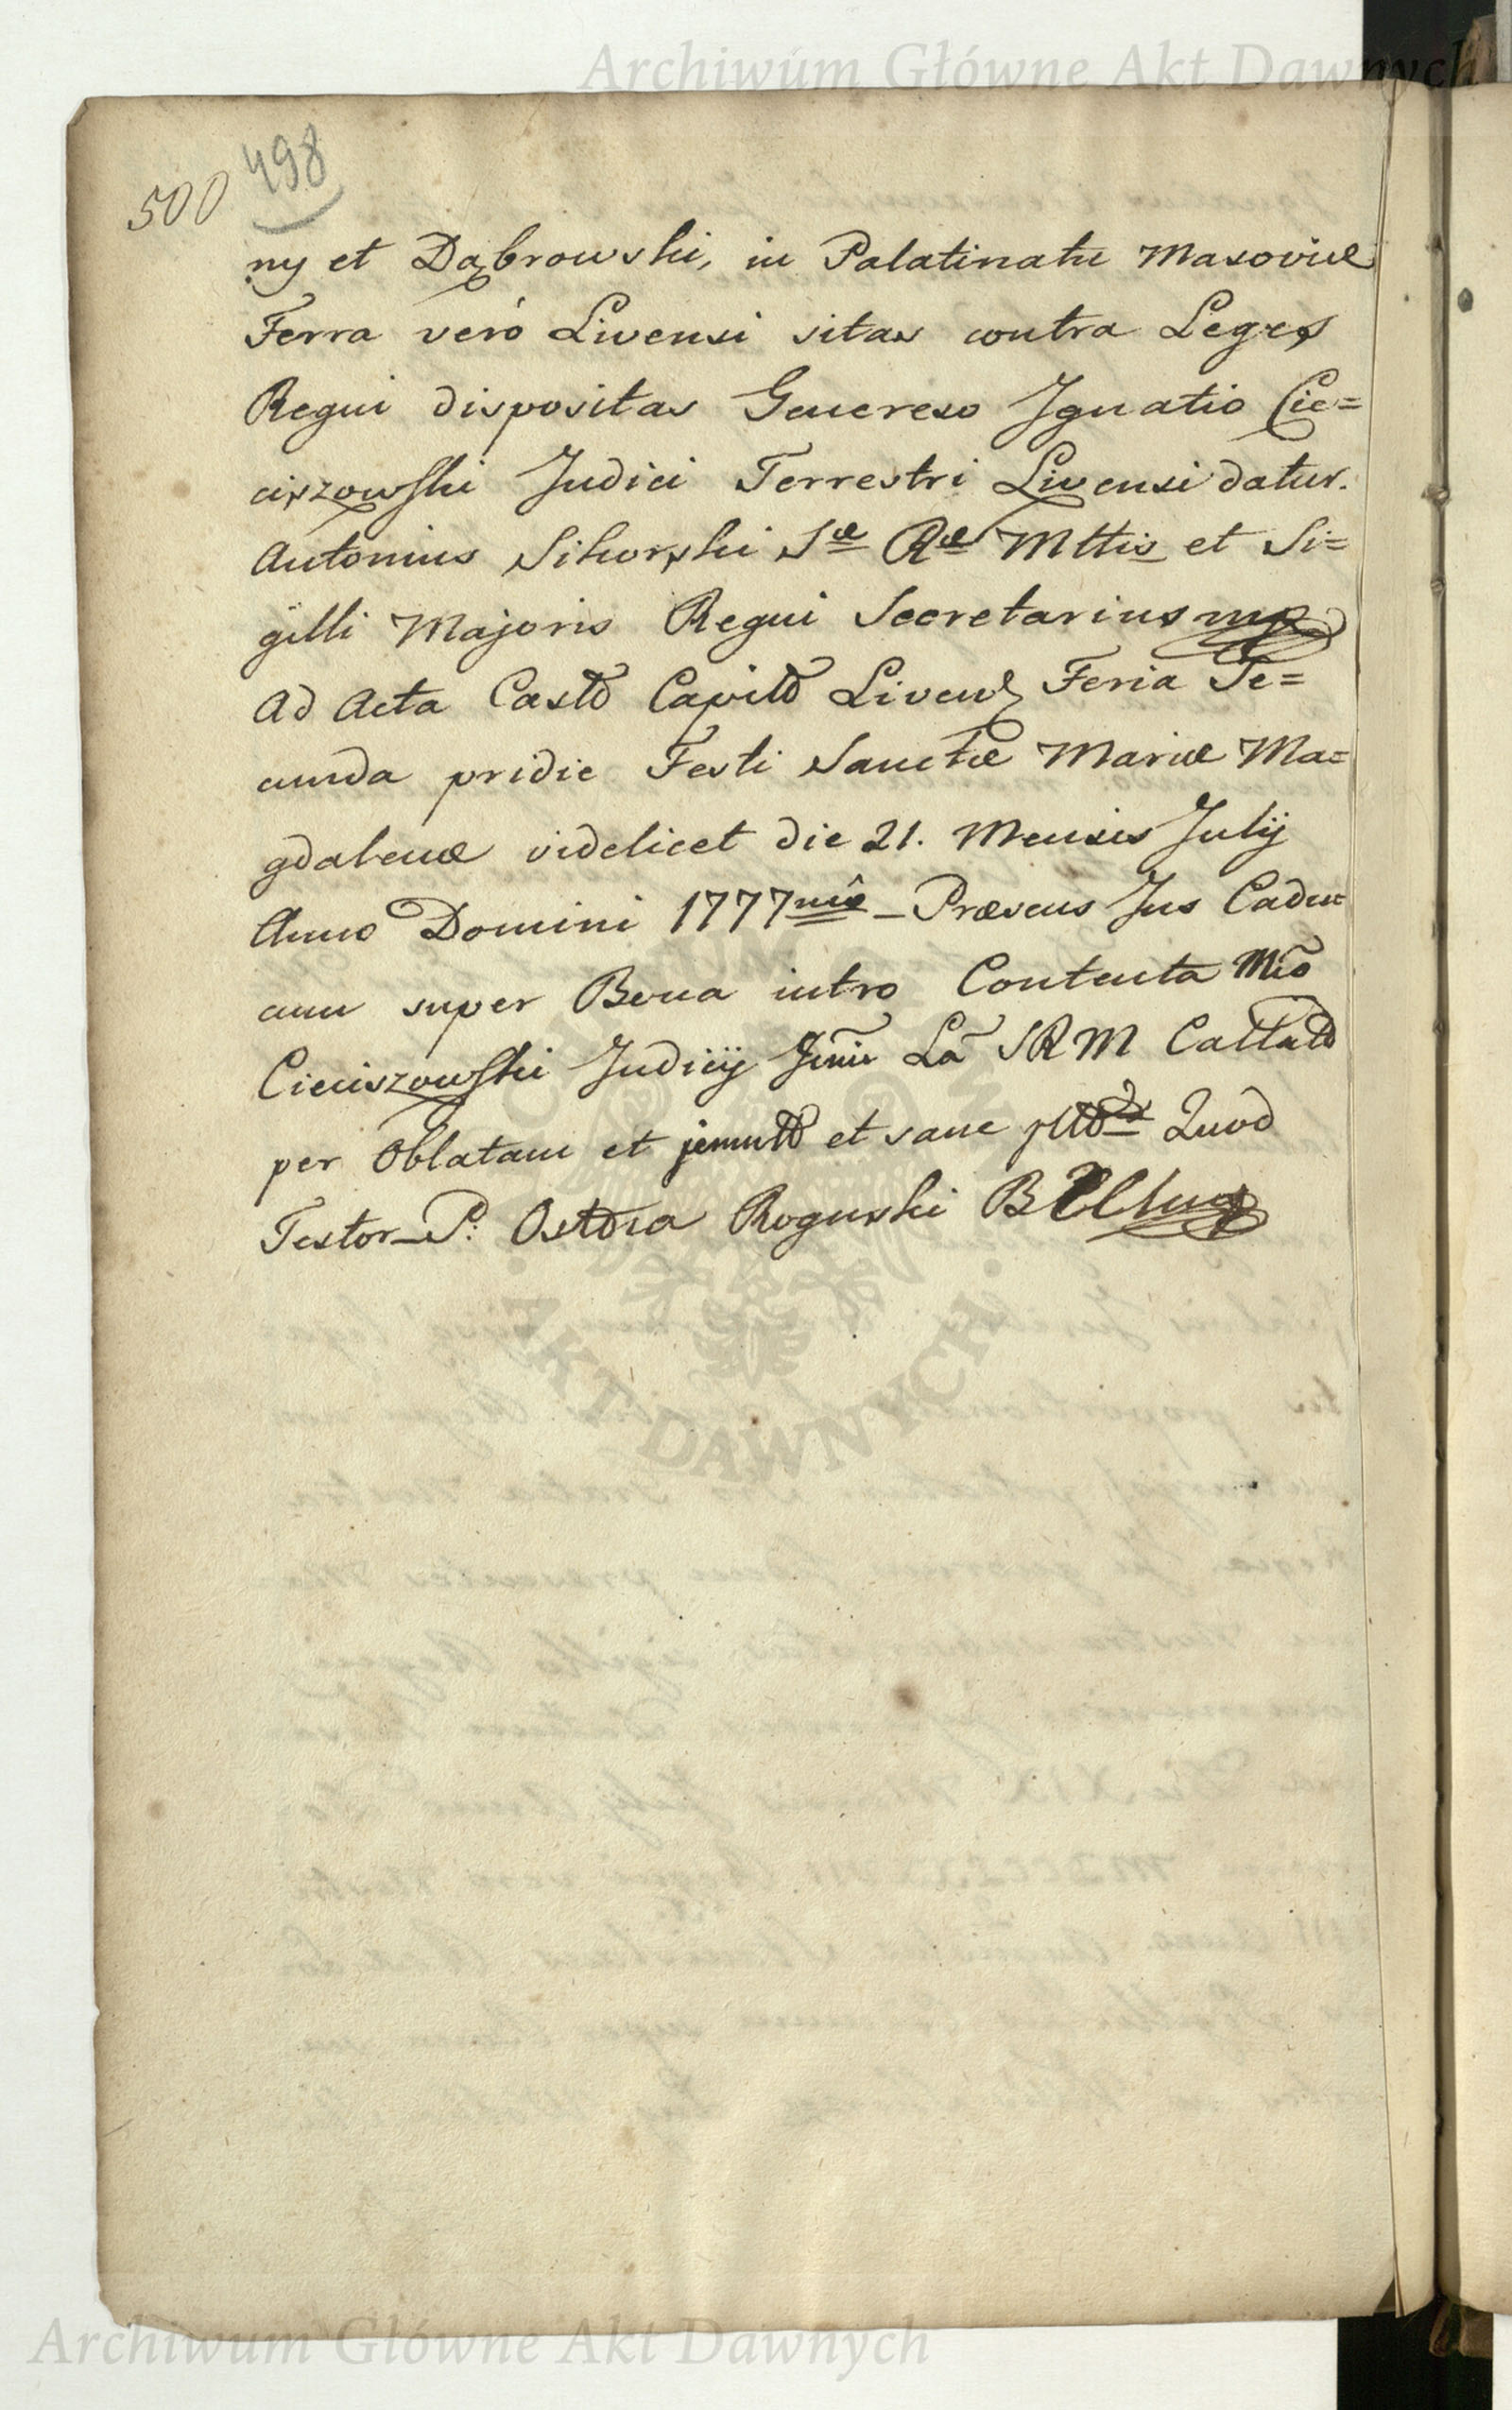 Archiwum Główne Akt Dawnych
500 498
ny et Dąbrowski, in Palatinatu Masoviæ
Terra veró Livensi sitas contra Leges
Regni dispositas Generoso Ignatio Cie=
ciszowski Judici Terrestri Livensi datur.
Antonius Sikorski Sæ Ræ Mttis et Si=
gilli Majoris Regni Secretarius mp
Ad Acta Castr Capitl Livens Feria Se=
cunda pridie Festi Sanctæ Mariæ Ma=
gdalenæ videlicet die 21. Mensis Julij
Anno Domini 1777mô _ Præsens Jus Cadu=
cum super Bona intro Contenta
Cieciszowski Judicij SRM
per Oblatam et et sane Quod
Testor _ P: Ostoia Roguski
ARCHIWUM GŁÓWNE
· AKT DAWNYCH ·
Archiwum Główne Akt Dawnych